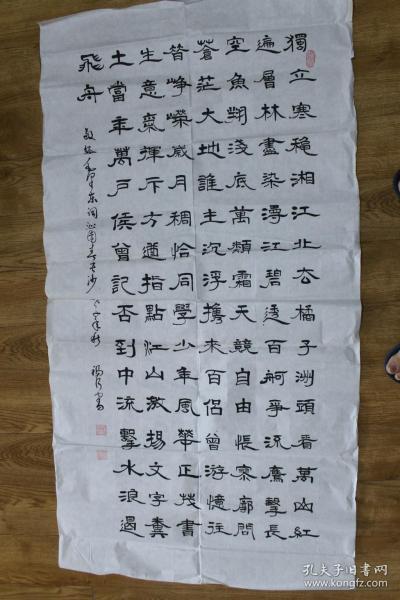 獨立寒穐湘江北去橘子洲頭看萬山紅
遍層林盡染漫江碧透百舸爭流鷹擊長
空魚翔淺底萬類霜天競自由悵寥廓問
蒼茫大地誰主沉浮攜來百侶曾游憶往
昔崢嶸歲月稠恰同學少年風華正茂書
生意氣揮斥方遒指點江山激揚文字糞
土當年萬戶侯曾記否到中流擊水浪遏
飛舟
敬錄毛澤東詞沁園春長沙
孔夫子旧书网
www.kongfz.com